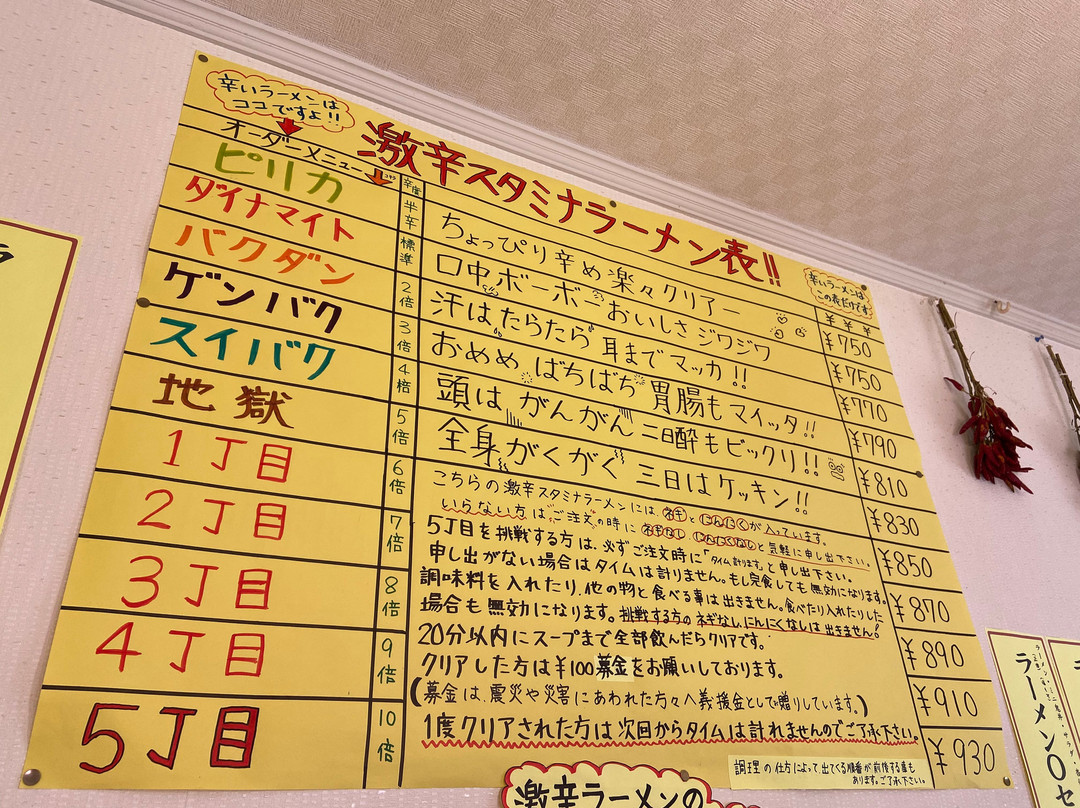 辛いラーメンは
ココですよ!!
激辛スタミナラーメン表!!
オーダーメニュー
辛度
辛いラーメンは
この表だけです
¥ ¥ ¥
ピリカ
半辛
ちょっぴり辛め楽々クリアー
¥750
ダイナマイト
標準
口中ボーボーおいしさジワジワ
¥750
バクダン
2倍
汗はたらたら耳までマッカ!!
¥770
ゲンバク
3倍
おめめぱちぱち胃腸もマイッタ!!
¥790
スイバク
4倍
頭はがんがん二日酔もビックリ!!
¥810
地獄
5倍
全身がくがく三日はケッキン!!
¥830
1丁目
6倍
¥850
2丁目
7倍
¥870
3丁目
8倍
¥890
4丁目
9倍
¥910
5丁目
10倍
¥930
こちらの激辛スタミナラーメンには ネギ と にんにく が入っています。
いらない方はご注文の時に ネギなし にんにくなし と気軽に申し出下さい。
5丁目を挑戦する方は、必ずご注文時に「タイム計ります」と申し出下さい。
申し出がない場合はタイムは計りません。もし完食しても無効になります。
調味料を入れたり、他の物と食べる事は出きません。食べたり入れたりした
場合も無効になります。挑戦する方のネギなし、にんにくなしは出きません!
20分以内にスープまで全部飲んだらクリアです。
クリアした方は¥100募金をお願いしております。
(募金は、震災や災害にあわれた方々へ義援金として贈りしています。)
1度クリアされた方は次回からタイムは計れませんのでご了承下さい。
調理の仕方によって、出てくる順番が前後する事も
あります。ご了承下さい。
激辛ラーメンの
ラ
ラーメン〇セ